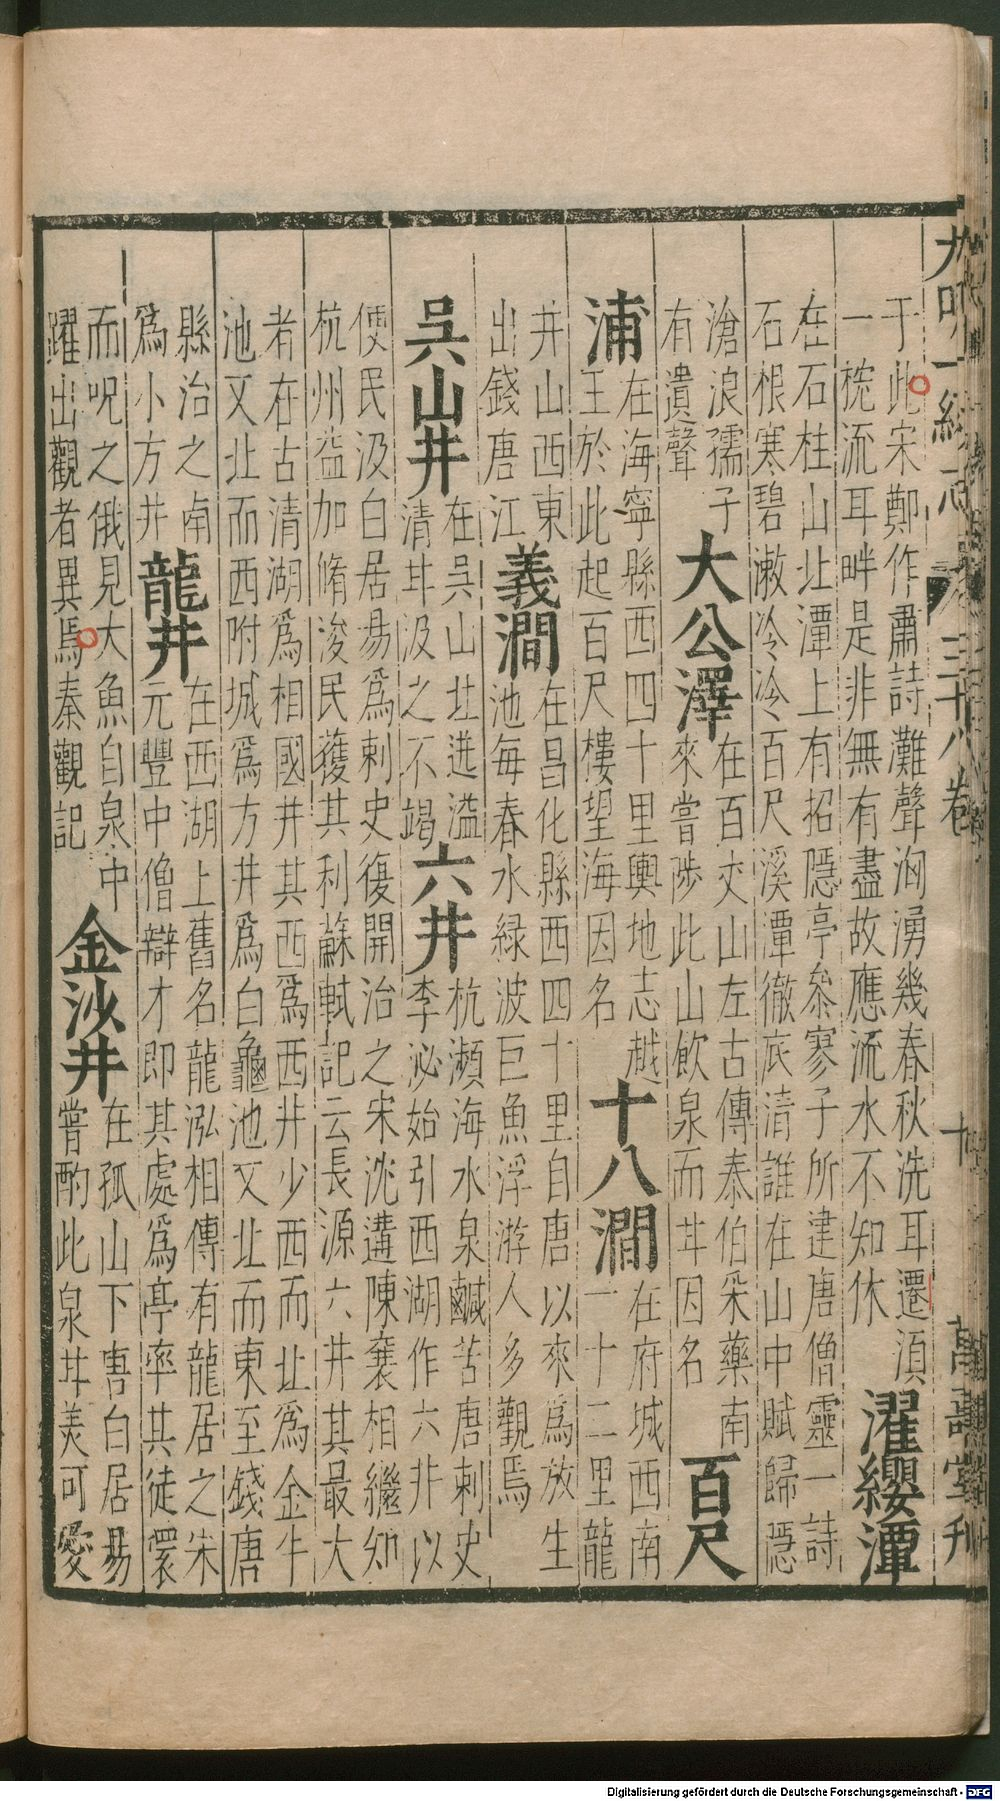 大明一統志 三十八卷 十 萬壽堂刊
于此宋鄭作肅詩灘聲洶湧幾春秋洗耳遷湏
一枕流耳畔是非無有盡故應流水不知休
濯纓潭
在石柱山北潭上有招隱亭叅寥子所建唐僧靈一詩
石根寒碧漱冷冷百尺溪潭徹底清誰在山中賦歸隱
滄浪孺子
有遺聲
大公澤
在百丈山左古傳泰伯采藥南
來嘗陟此山飲泉而甘因名
百尺
浦
在海寧縣西四十里輿地志越
王於此起百尺樓望海因名
十八澗
在府城西南
一十二里龍
井山西東
出錢唐江
義澗
在昌化縣西四十里自唐以來爲放生
池每春水緑波巨魚浮游人多觀焉
吳山井
在吳山北迸溢
清甘汲之不竭
六井
杭瀕海水泉鹹苦唐刺史
李泌始引西湖作六井以
便民汲白居昜爲刺史復開治之宋沈遘陳襄相繼知
杭州益加脩浚民獲其利蘇軾記云長源六井其最大
者在古清湖爲相國井其西爲西井少西而北爲金牛
池又北而西附城爲方井爲白龜池又北而東至錢唐
縣治之南
爲小方井
龍井
在西湖上舊名龍泓相傳有龍居之宋
元豐中僧辯才即其處爲亭率其徒環
而呪之俄見大魚自泉中
躍出觀者異焉秦觀記
金沙井
在孤山下唐白居昜
嘗酌此泉甘美可愛
Digitalisierung gefördert durch die Deutsche Forschungsgemeinschaft - DFG